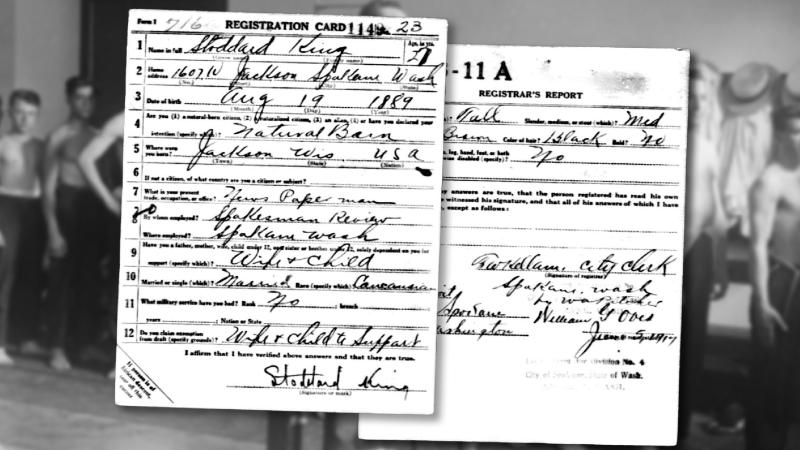 Form 1 716 REGISTRATION CARD 1149 23
1 Name in full Stoddard King Age, in yrs. 27
(Given name) (Family name)
2 Home address 1607 W Jackson Spokane Wash
(No.) (Street) (City) (State)
3 Date of birth Aug 19 1889
(Month) (Day) (Year)
4 Are you (1) a natural-born citizen, (2) a naturalized citizen, (3) an alien, (4) or have you declared your
intention (specify which)? Natural Born
5 Where were you born? Jackson Wis USA
(Town) (State) (Nation)
6 If not a citizen, of what country are you a citizen or subject?
7 What is your present trade, occupation, or office? News Paper man
8 By whom employed? Spokesman Review
Where employed? Spokane wash
9 Have you a father, mother, wife, child under 12, or a sister or brother under 12, solely dependent on you for
support (specify which)? Wife & Child
10 Married or single (which)? Married Race (specify which)? Caucausian
11 What military service have you had? Rank No ; branch
years ; Nation or State
12 Do you claim exemption from draft (specify grounds)? Wife & Child to Support
I affirm that I have verified above answers and that they are true.
Stoddard King
(Signature or mark)
-11 A
REGISTRAR'S REPORT
Tall Slender, medium, or stout (which)? Med
Brown Color of hair? Black Bald? No
leg, hand, foot, or both
disabled (specify)? No
my answers are true, that the person registered has read his own
witnessed his signature, and that all of his answers of which I have
except as follows:
city clerk
(Signature of registrar)
Spokane, wash
Spokane William
Washington June 5, 1917
Division No. 4
City of Spokane, State of Wash.